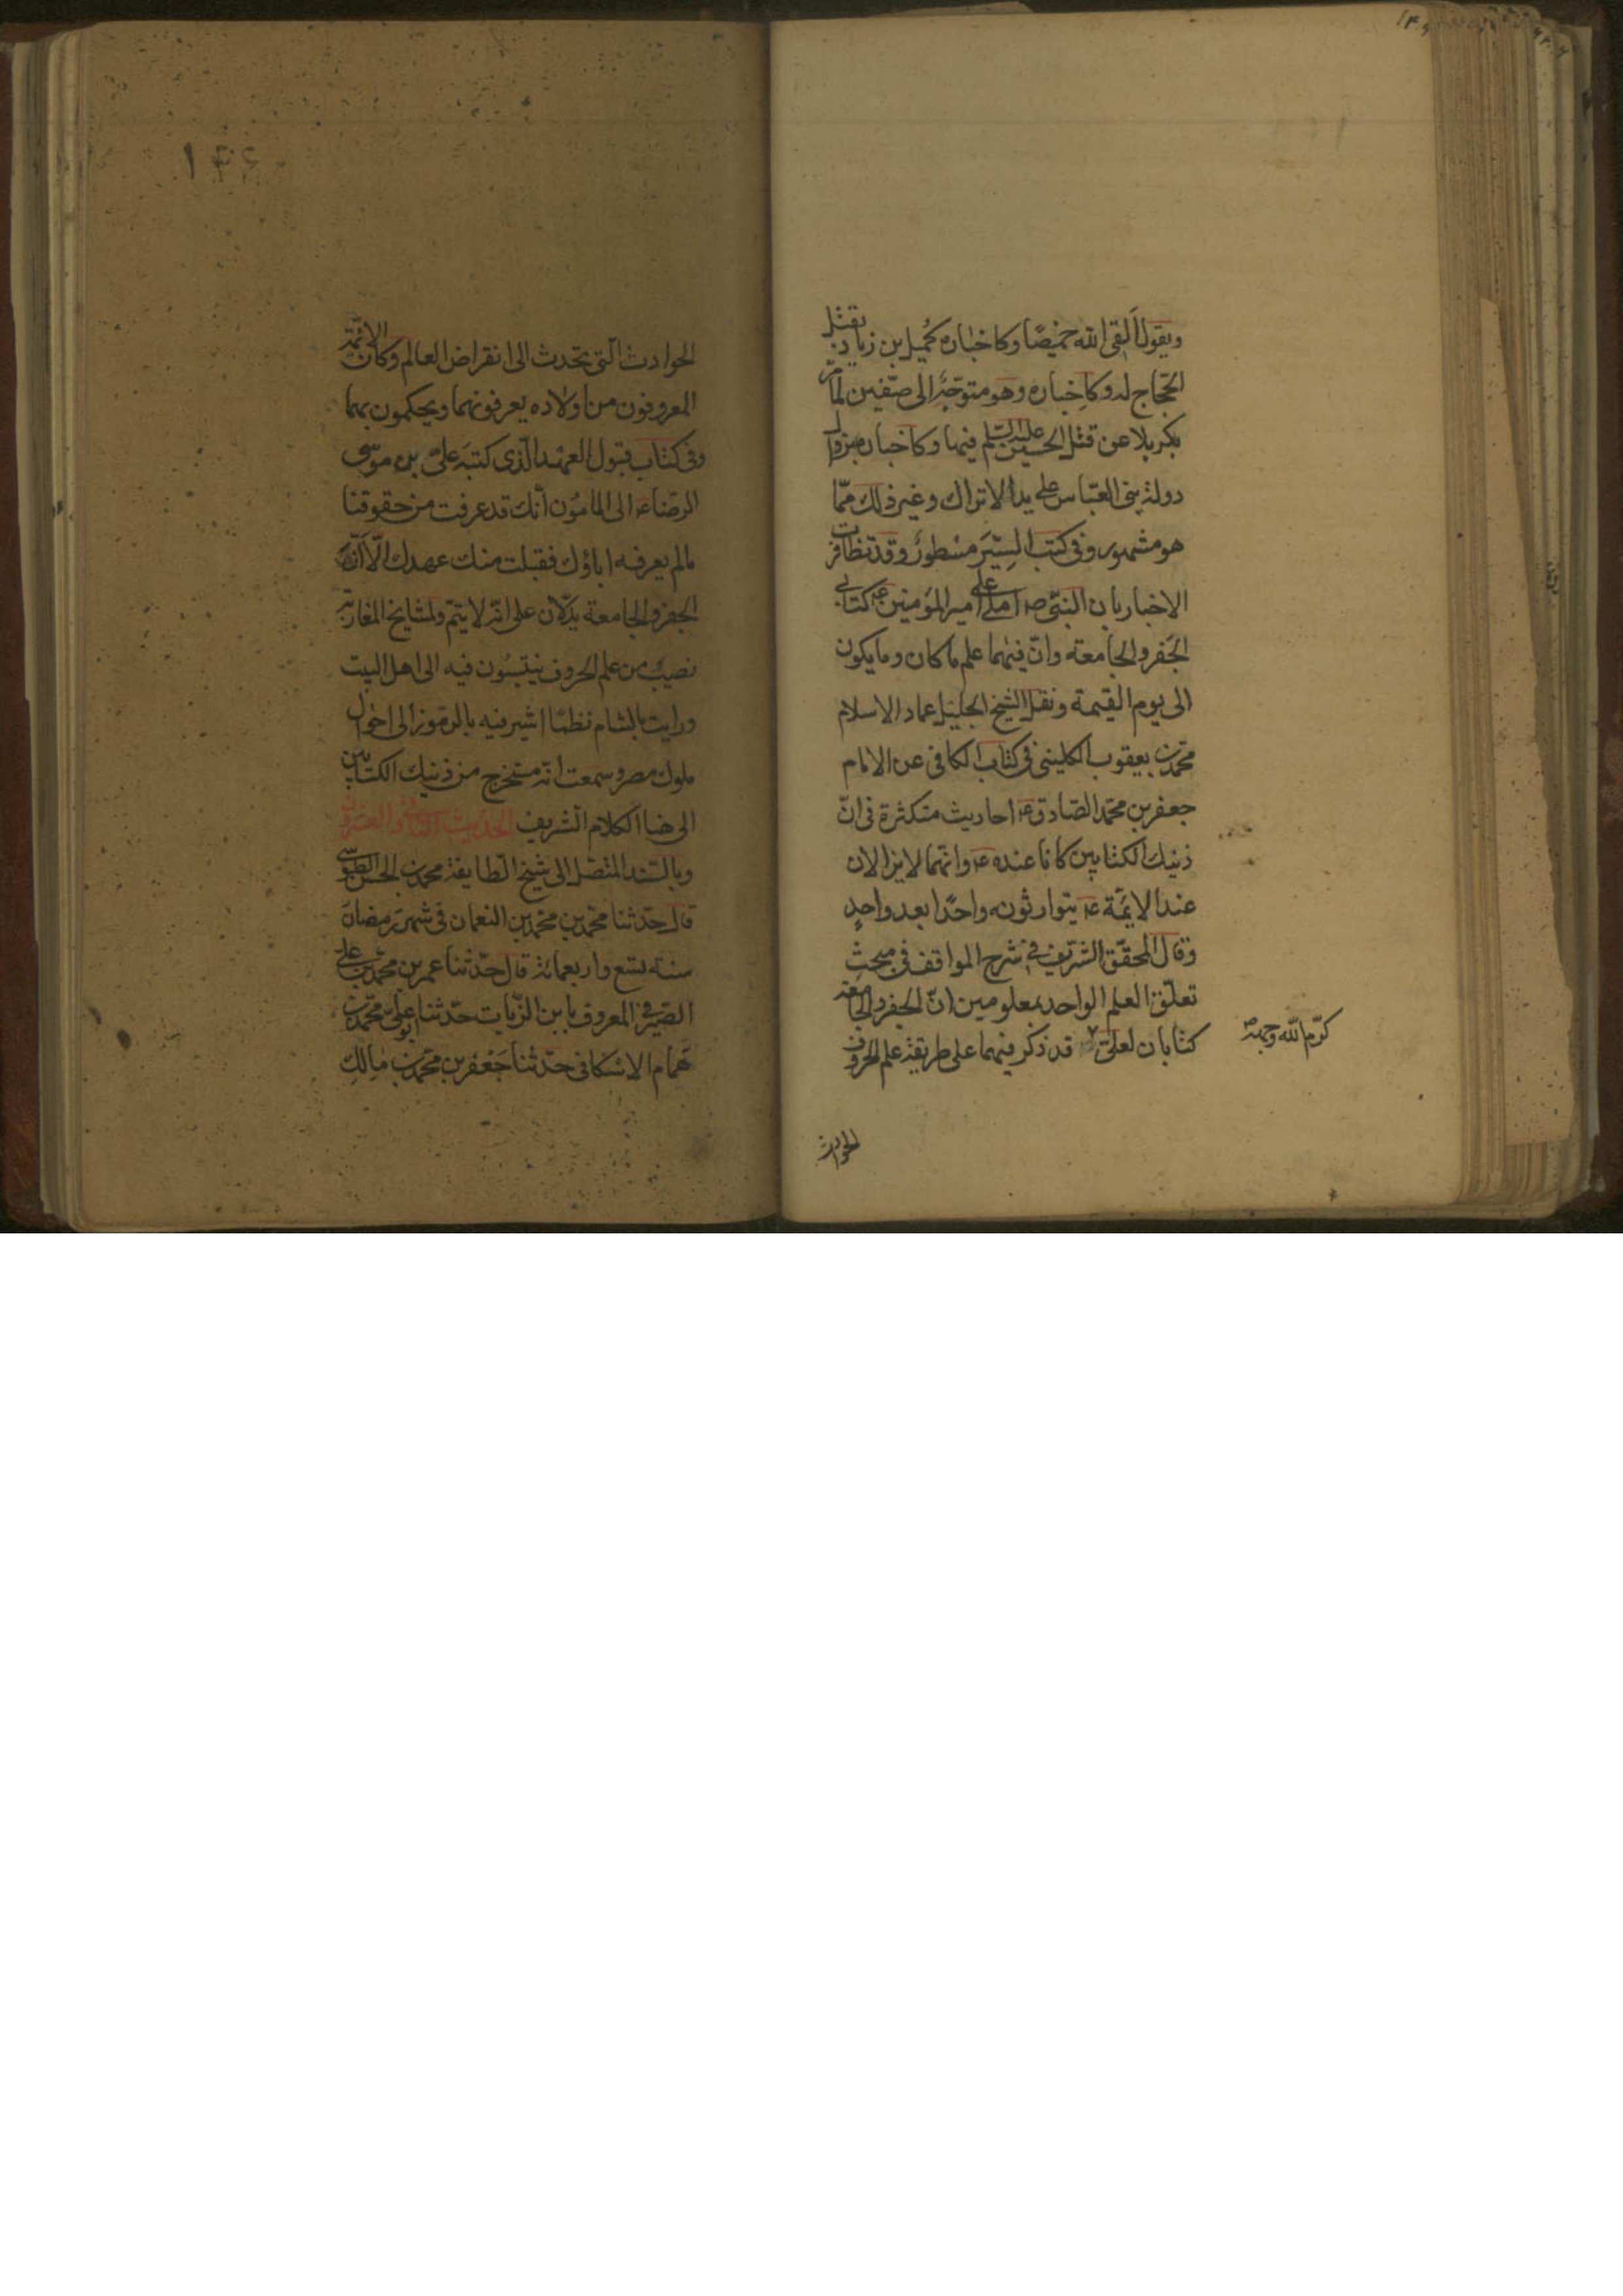 ويقول القى الله خميصًا وكاخباره كميل بن زياد بقتل
الحجّاج له وكاخباره وهو متوجّه الى صفّين لمّا مرّ
بكربلا عن قتل الحسين عليه السلم فيها وكاخباره بزوال
دولة بنى العبّاس على يد الاتراك وغير ذلك ممّا
هو مشهور وفى كتب السِيَر مسطورٌ وقد تظافرت
الاخبار بان النبىّ ص املى على امير المؤمنين ع كتابى
الجفر والجامعة وانّ فيهما علم ما كان وما يكون
الى يوم القيمة ونقل الشيخ الجليل عماد الاسلام
محمد بن يعقوب الكلينى فى كتاب الكافى عن الامام
جعفر بن محمد الصّادق ع احاديث متكثرة فى انّ
ذينك الكتابين كانا عنده ع وانّهما لا يزالان
عند الائمّة ع يتوارثونه واحدًا بعد واحدٍ
وقال المحقّق الشريف فى شرح المواقف فى مبحث
تعلّق العلم الواحد بمعلومين انّ الجفر والجامعة
كتابان لعلىّ قد ذكر فيهما على طريقة علم الحروف
كرّم الله وجهه
الحوادث
١٤٤
الحوادث الّتى تحدث الى انقراض العالم وكان الائمّة
المعروفون من اولاده يعرفونهما ويحكمون بهما
وفى كتاب قبول العهد الّذى كتبه علىّ بن موسى
الرضا ع الى المامون انّك قد عرفت من حقوقنا
مالم يعرفه اباؤك فقبلت منك عهدك الّا انّ
الجفر والجامعة يدلّان على انّه لا يتمّ ولمشايخ المغاربة
نصيبٌ من علم الحروف ينتسبون فيه الى اهل البيت
ورايت بالشام نظمًا اشير فيه بالرموز الى احوال
ملوك مصر وسمعت انّه مستخرج من ذينك الكتابين
الى هنا الكلام الشريف الحديث والعشرون
وبالسّند المتّصل الى شيخ الطايفة محمد بن الحسن الطوسى
قال حدّثنا محمّد بن محمّد بن النعمان فى شهر رمضان
سنة تسع واربعمائة قال حدّثنا عمر بن محمّد بن على
الصّيرفى المعروف بابن الزّيات حدّثنا ابو على محمّد بن
همام الاسكافى حدّثنا جعفر بن محمّد بن مالك